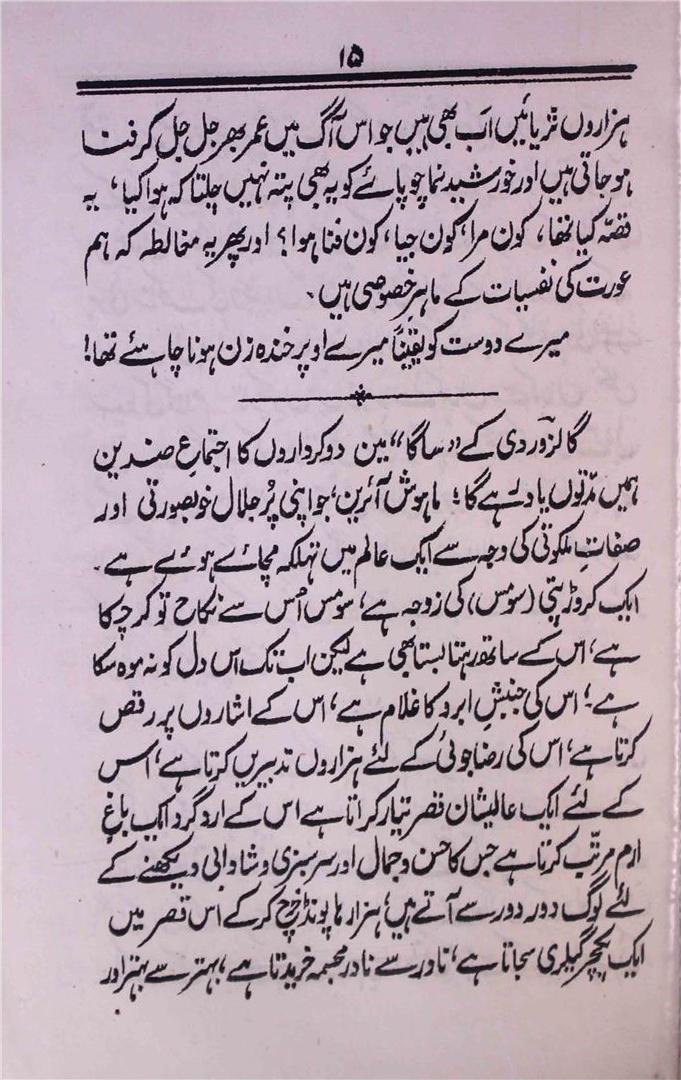 ۱۵
ہزاروں ثریائیں اَب بھی ہیں جو اس آگ میں عمر بھر جل جل کر فنا
ہو جاتی ہیں اور خورشید نما چوپائے کو یہ بھی پتہ نہیں چلتا کہ ہوا کیا، یہ
قصّہ کیا تھا، کون مرا، کون جیا، کون فنا ہوا؟ اور پھر یہ مغالطہ کہ ہم
عورت کی نفسیات کے ماہرِ خصوصی ہیں۔
میرے دوست کو یقیناً میرے اوپر خندہ زن ہونا چاہئے تھا!
گالزوردی کے "ساگا" میں دو کرداروں کا اجتماعِ ضدین
ہمیں مدّتوں یاد رہے گا؛ ماہوش آئرین، جو اپنی پُر جلال خوبصورتی اور
صفاتِ ملکوتی کی وجہ سے ایک عالم میں تہلکہ مچائے ہوئے ہے۔
ایک کروڑ پتی (سومس) کی زوجہ ہے، سومس اُس سے نکاح تو کر چکا
ہے، اس کے ساتھ رہتا بستا بھی ہے لیکن اب تک اس دل کو نہ موہ سکا
ہے؛ اس کی جنبشِ ابرو کا غلام ہے، اس کے اشاروں پر رقص
کرتا ہے، اس کی رضا جوئی کے لئے ہزاروں تدبیریں کرتا ہے، اس
کے لئے ایک عالیشان قصر تیار کراتا ہے اس کے ارد گرد ایک باغِ
ارم مرتّب کرتا ہے جس کا حسن و جمال اور سرسبزی و شادابی دیکھنے کے
لئے لوگ دور دور سے آتے ہیں؛ ہزار ہا پونڈ خرچ کر کے اس قصر میں
ایک پکچر گیلری سجاتا ہے، نادر سے نادر مجسمہ خریدتا ہے، بہتر سے بہتر اور